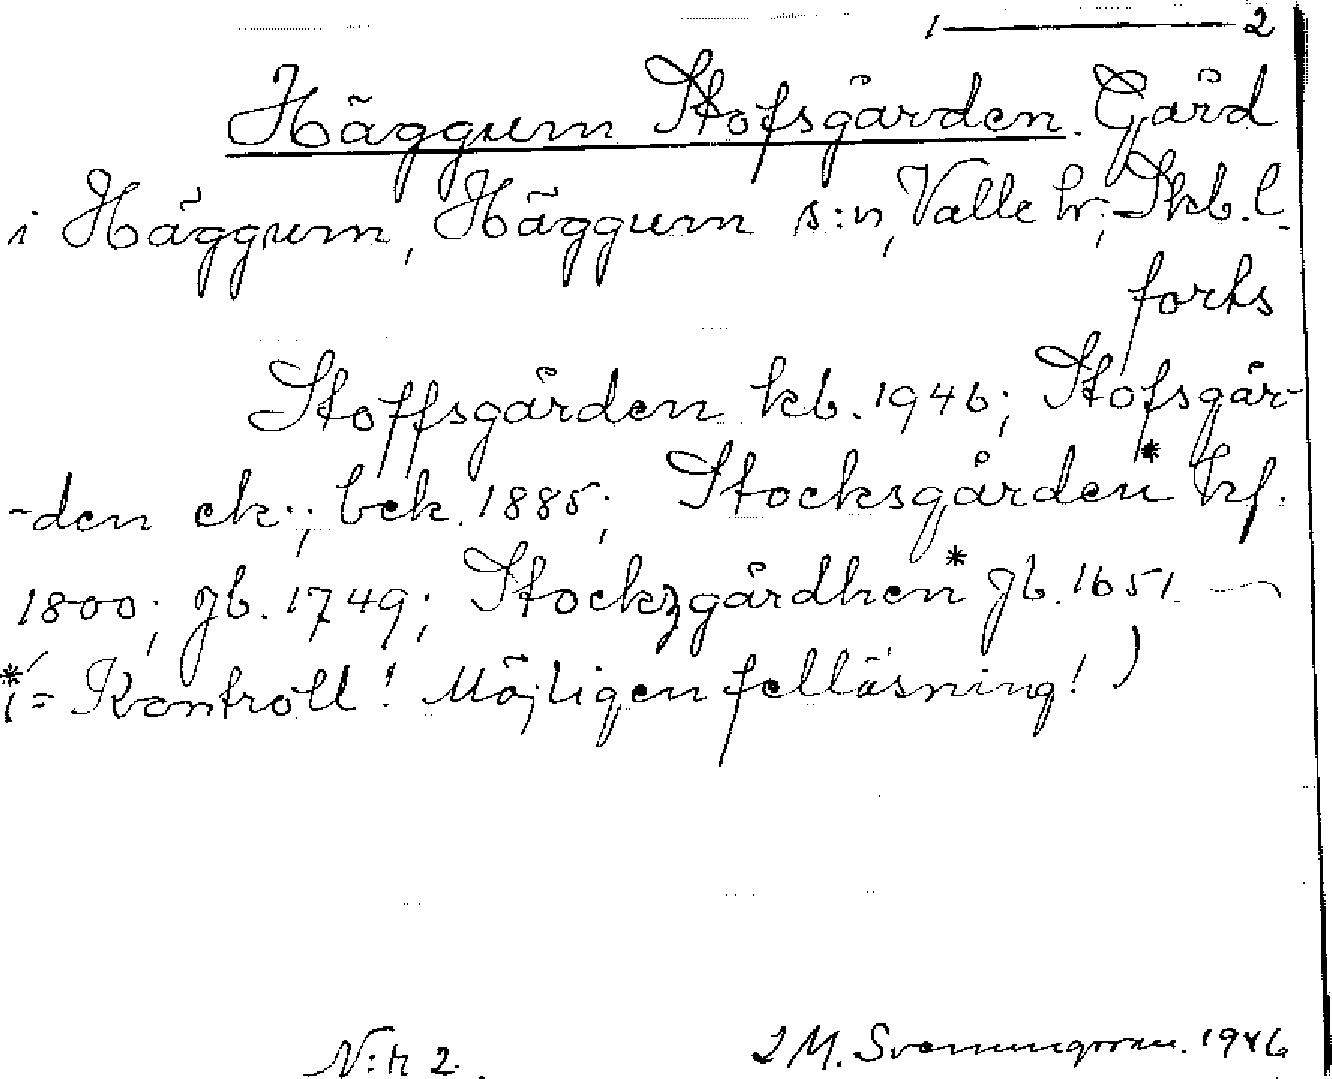 1 ——— 2
Häggum Stofsgården. Gård
i Häggum, Häggum s:n, Valle hr; Skb. l.
forts
Stoffsgården kb. 1946; Stofsgår-
-den ek.; bek. 1885; Stocksgården* kf.
1800; jb. 1749; Stockzgårdhen* jb. 1651
(*= Kontroll! Möjligen felläsning!)
N:r 2. I M. Svenningsson. 1946